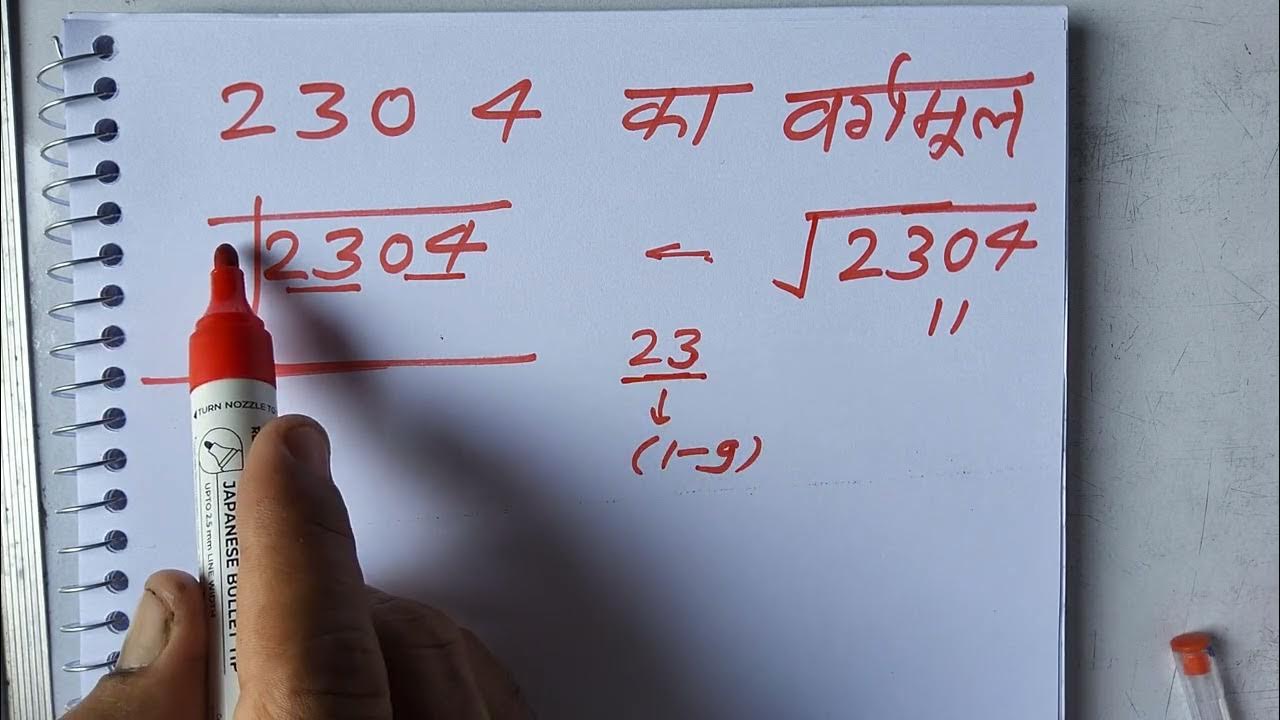 2304 का वर्गमूल
2304 ← √2304
23
↓
(1-9)
TURN NOZZLE TO
JAPANESE BULLET TIP
UPTO 2.5 mm LINE WIDTH